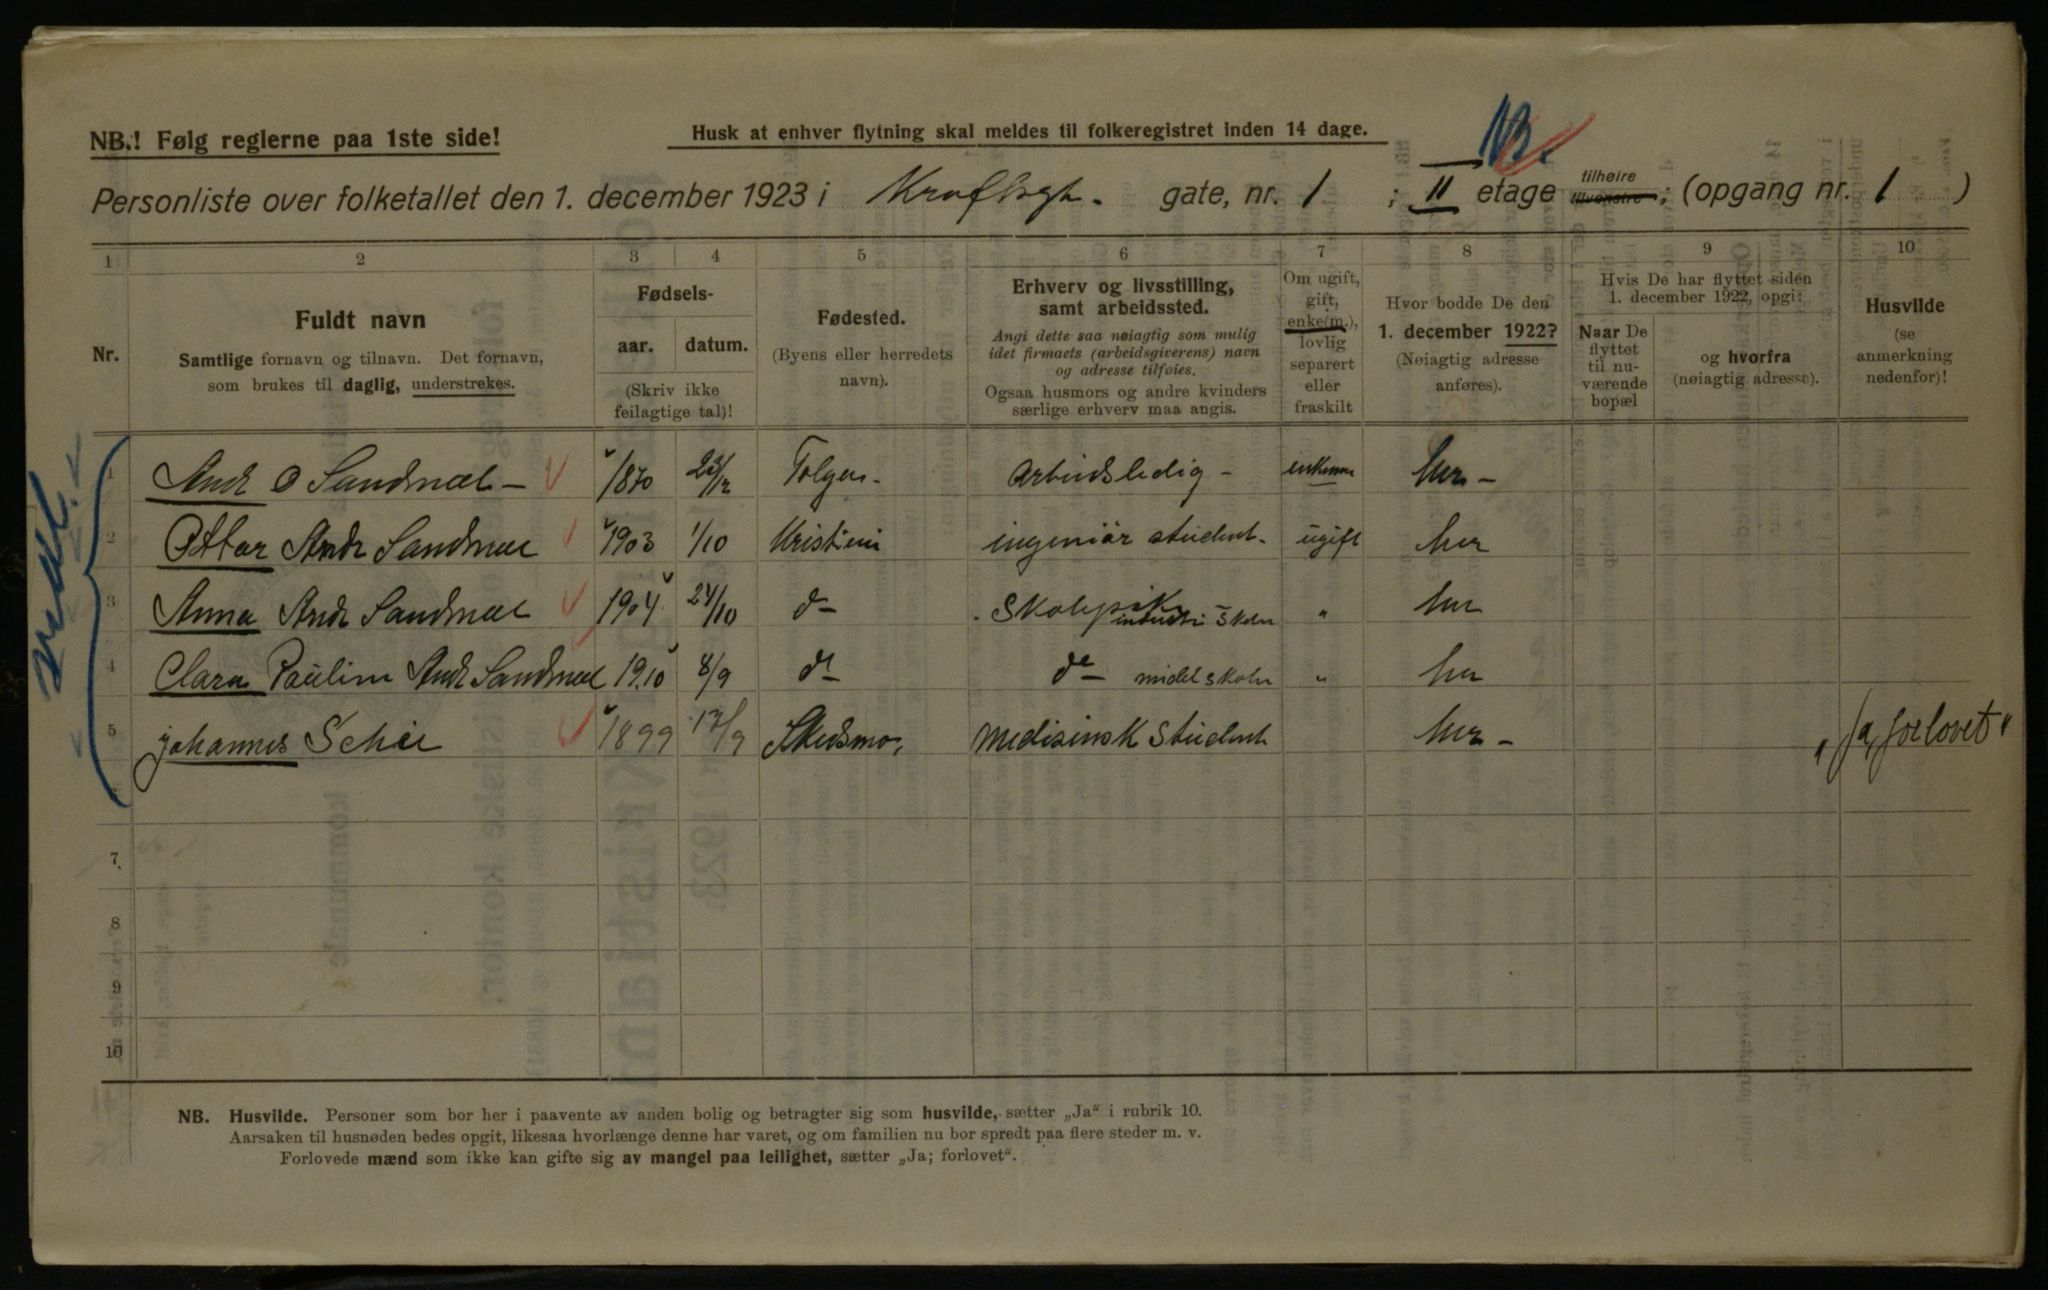 NB.
NB.! Følg reglerne paa 1ste side!
Husk at enhver flytning skal meldes til folkeregistret inden 14 dage.
Personliste over folketallet den 1. december 1923 i gate, nr. 1 ; II etage tilheire tilvenstre; (opgang nr. 1 )
1 2 3 4 5 6 7 8 9 10
Nr.
Fuldt navn
Samtlige fornavn og tilnavn. Det fornavn,
som brukes til daglig, understrekes.
Fødsels-
aar. datum.
(Skriv ikke
feilagtige tal)!
Fødested.
(Byens eller herredets
navn).
Erhverv og livsstilling,
samt arbeidssted.
Angi dette saa nøiagtig som mulig
idet firmaets (arbeidsgiverens) navn
og adresse tilføies.
Ogsaa husmors og andre kvinders
særlige erhverv maa angis.
Om ugift,
gift,
enke(m.),
lovlig
separert
eller
fraskilt
Hvor bodde De den
1. december 1922?
(Nøiagtig adresse
anføres).
Hvis De har flyttet siden
1. december 1922, opgi:
Naar De
flyttet
til nu-
værende
bopæl
og hvorfra
(nøiagtig adresse).
Husvilde
(se
anmerkning
nedenfor)!
1 Andr O Sandmæl – 1870 23/12 Arbeidsledig – her –
2 Ottar Andr Sandmæl 1903 1/10 ingeniør student. ugift her
3 Anna Andr Sandmæl 1904 24/10 d– industri skolen „ her
4 Clara Pauline Andr Sandmæl 1910 8/9 do de– middelskolen „ her
5 Johannes Schie 1899 17/9 Skedsmo, Medisinsk Student her – „Ja, forlovet"
7
8
9
10
NB. Husvilde. Personer som bor her i paavente av anden bolig og betragter sig som husvilde, sætter „Ja“ i rubrik 10.
Aarsaken til husnøden bedes opgit, likesaa hvorlænge denne har varet, og om familien nu bor spredt paa flere steder m. v.
Forlovede mænd som ikke kan gifte sig av mangel paa leilighet, sætter „Ja; forlovet“.